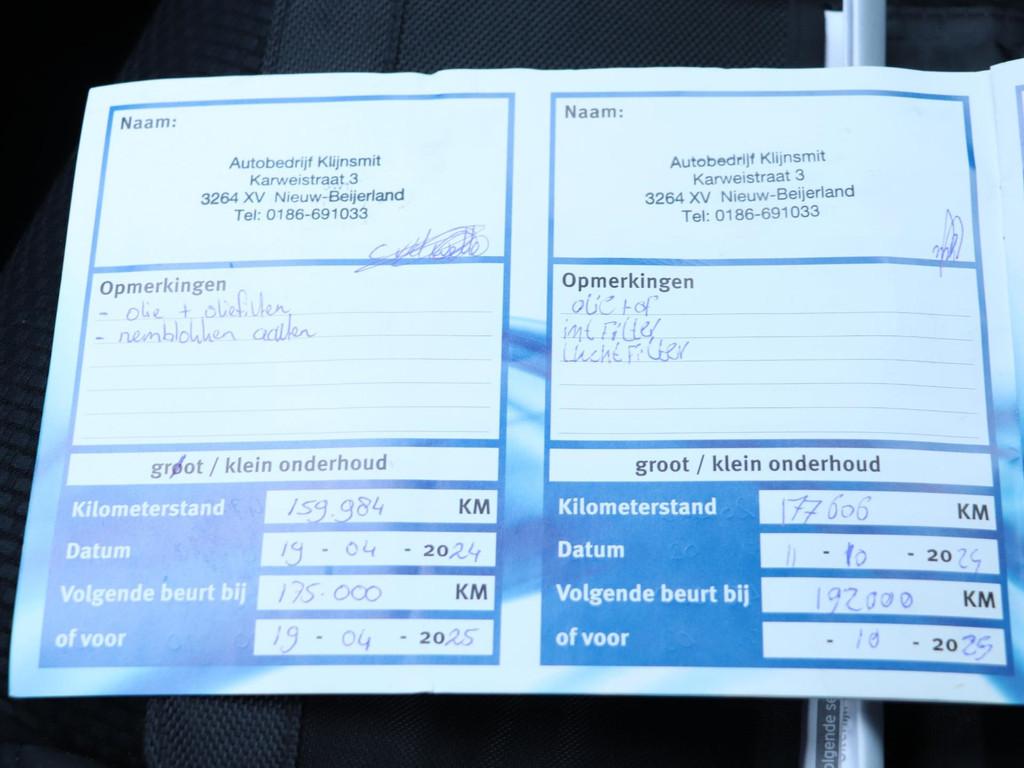 Naam:
Autobedrijf Klijnsmit
Karweistraat 3
3264 XV Nieuw-Beijerland
Tel: 0186-691033
Opmerkingen
- olie + oliefilter
- remblokken achter
groot / klein onderhoud
Kilometerstand 159.984 KM
Datum 19 - 04 - 2024
Volgende beurt bij 175.000 KM
of voor 19 - 04 - 2025
Naam:
Autobedrijf Klijnsmit
Karweistraat 3
3264 XV Nieuw-Beijerland
Tel: 0186-691033
Opmerkingen
olie + of
int Filter
Lucht Filter
groot / klein onderhoud
Kilometerstand 177606 KM
Datum 11 - 10 - 2024
Volgende beurt bij 192000 KM
of voor - 10 - 2025